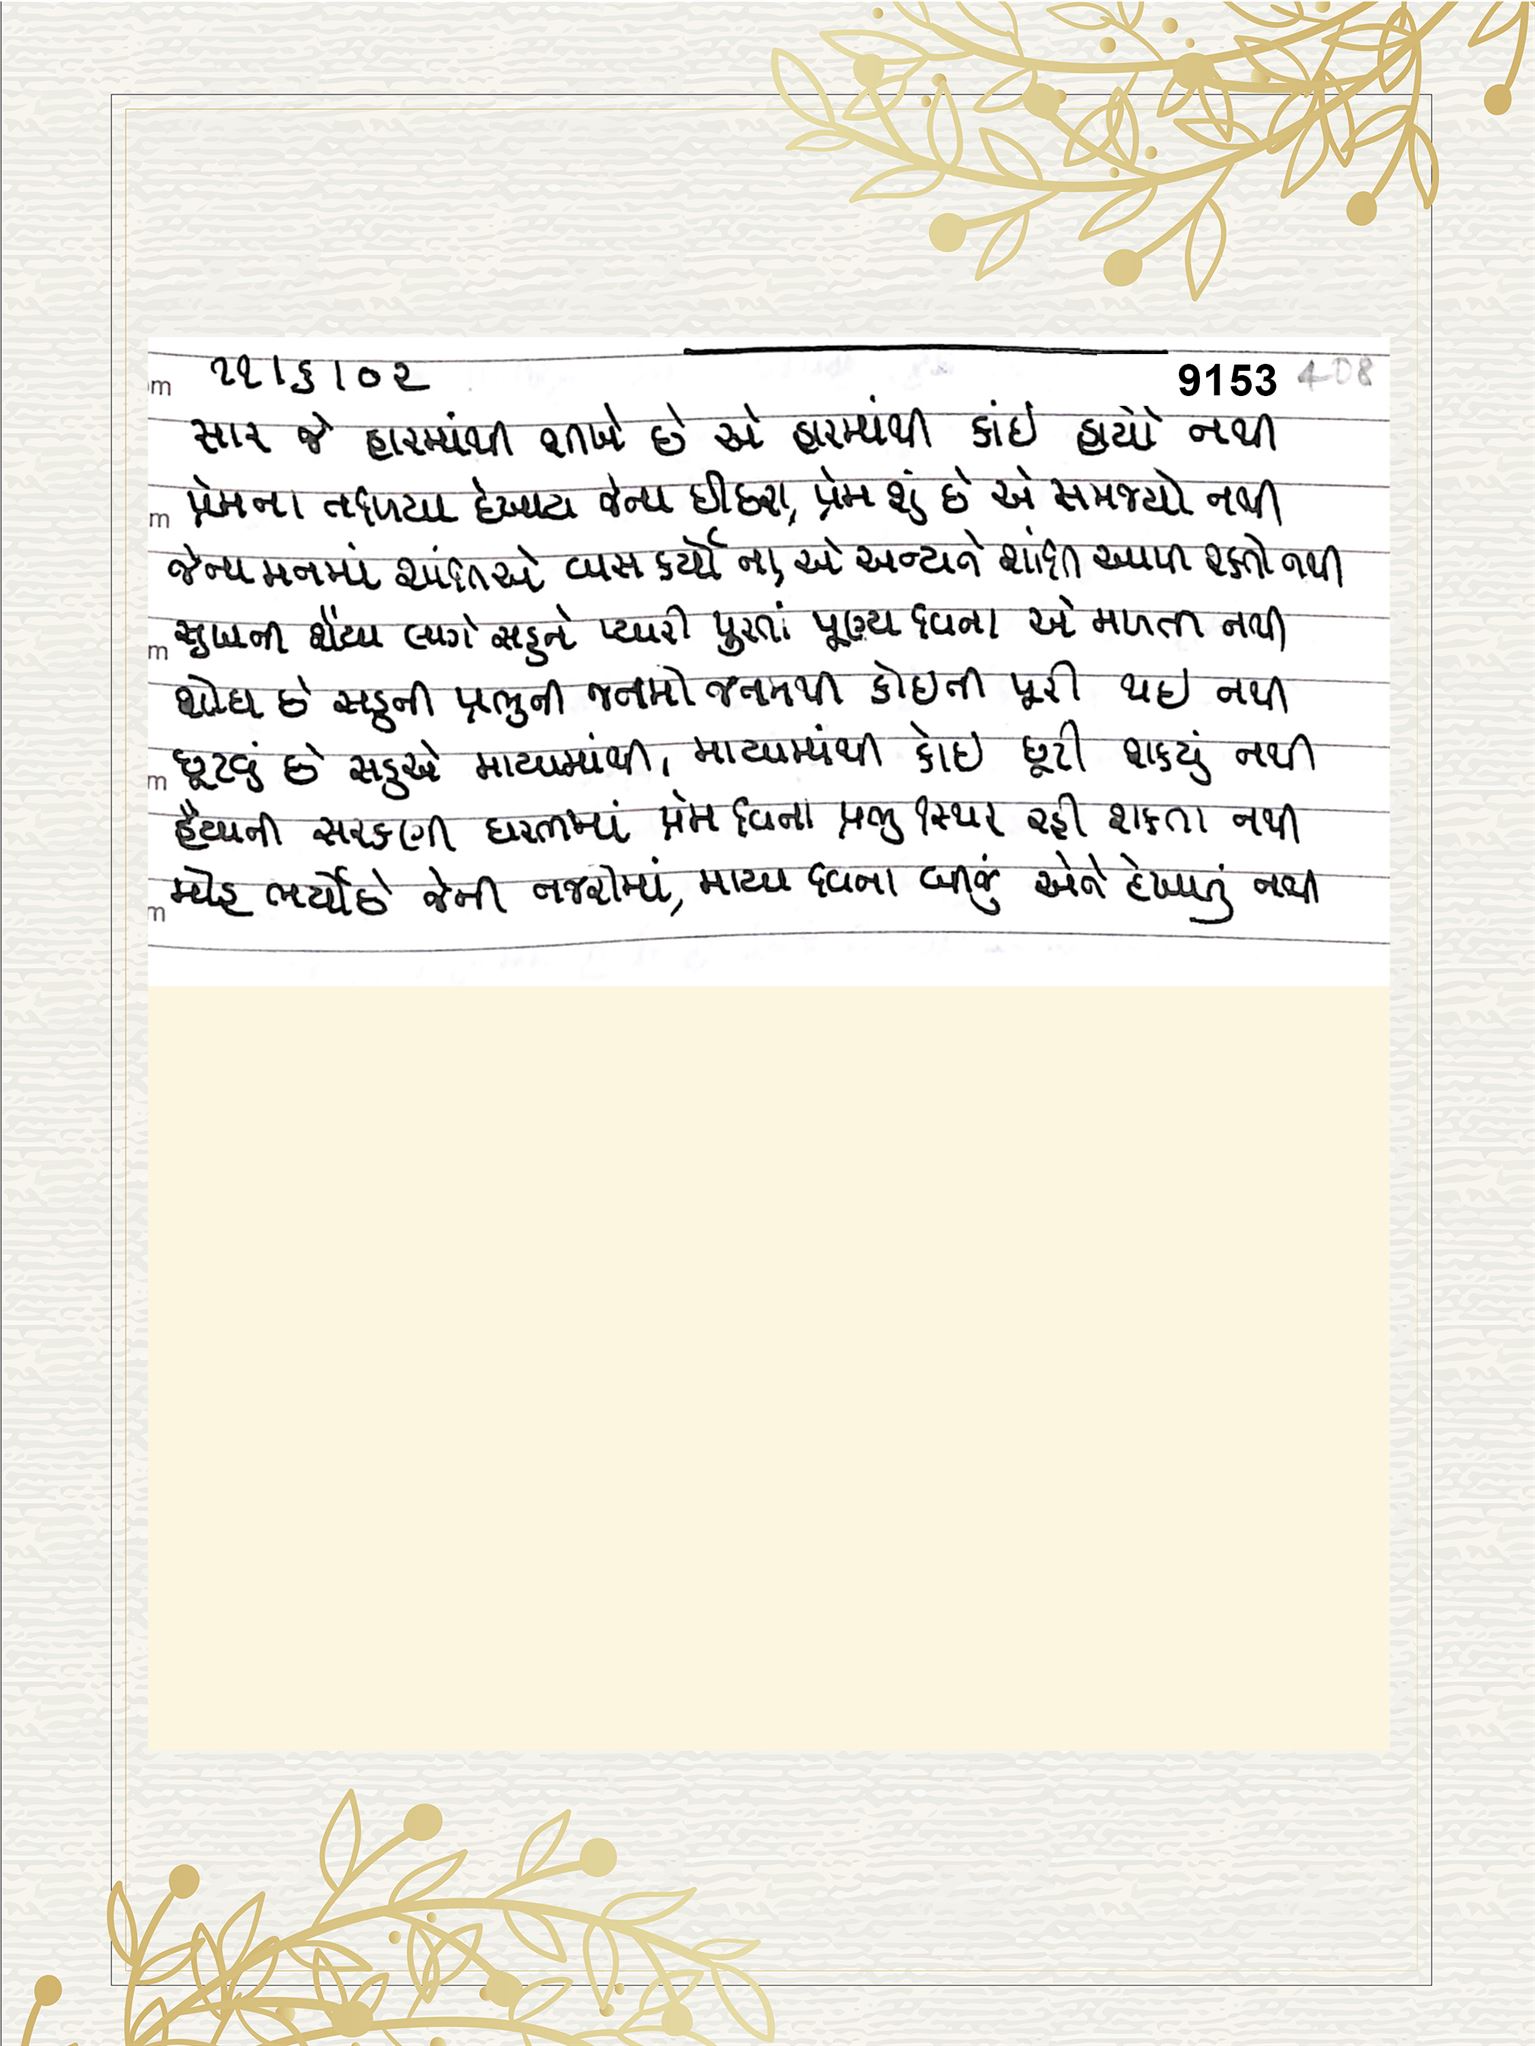 ૨૨।૬।૦૨ 9153 408
સાર જે હારમાંથી શીખે છે એ હારમાંથી કાંઈ હાર્યો નથી
પ્રેમના તળિયા દેખાય જેના છીછરા, પ્રેમ શું છે એ સમજ્યો નથી
જેના મનમાં શાંતિએ વાસ કર્યો ના, એ અન્યને શાંતિ આપી શક્તો નથી
સુખની શૈયા લાગે સહુને પ્યારી પુરતાં પૂણ્ય વિના એ મળતી નથી
શોધ છે સહુની પ્રભુની જનમો જનમથી કોઇની પૂરી થઇ નથી
છૂટવું છે સહુએ માયામાંથી, માયામાંથી કોઇ છૂટી શક્યું નથી
હૈયાની સરકણી ધરતીમાં પ્રેમ વિના પ્રભુ સ્થિર રહી શક્તા નથી
મોહ ભર્યો છે જેની નજરોમાં, માયા વિના બીજું એને દેખાતું નથી